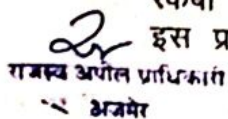 इस प्र
राजस्व अपील प्राधिकारी
अजमेर